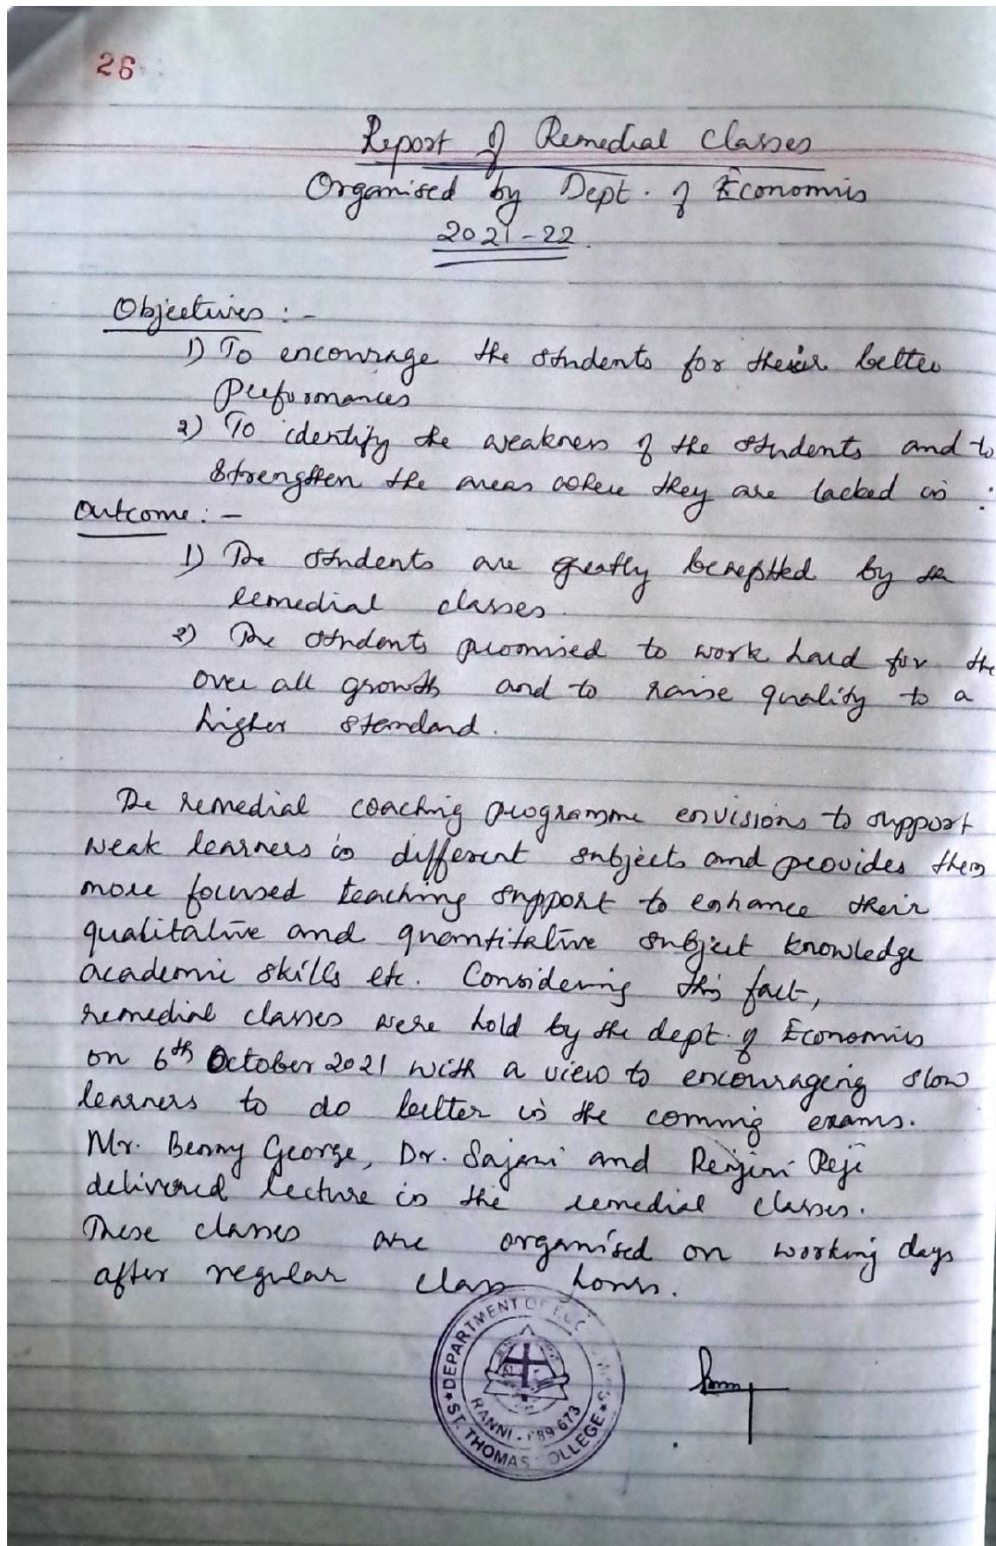 26
Report of Remedial Classes
Organised by Dept. of Economics
2021-22.
Objectives :-
1) To encourage the students for their better
performances
2) To identify the weakness of the students and to
strengthen the areas where they are lacked in :
Outcome :-
1) The students are greatly benefitted by the
remedial classes.
2) The students promised to work hard for the
over all growth and to raise quality to a
higher standard.
The remedial coaching programme envisions to support
weak learners in different subjects and provides them
more focused teaching support to enhance their
qualitative and quantitative subject knowledge
academic skills etc. Considering this fact,
remedial classes were held by the dept. of Economics
on 6th October 2021 with a view to encourageing slow
learners to do better in the coming exams.
Mr. Benny George, Dr. Sajani and Renjini Reji
delivered lecture in the remedial classes.
These classes are organised on working days
after regular class hours.
DEPARTMENT OF
RANNI - 689 673
ST. THOMAS COLLEGE